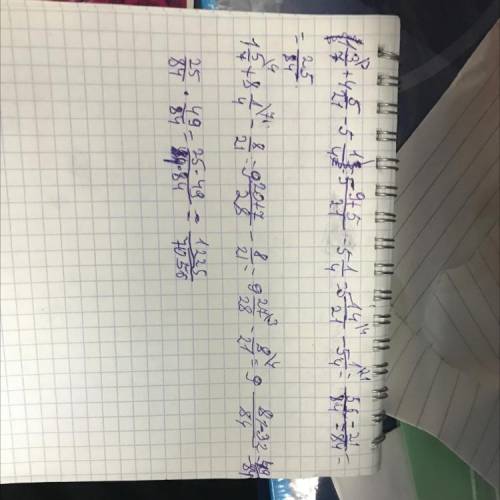 1 3/7 + 4 5/21 - 5 1/4 = 5 9+5/21 - 5 1/4 = 14/21 - 5 1/4 = 56-21/84-84 =
= 25/84
1 5/7 + 8 1/4 - 8/21 = 9 20+7/28 - 8/21 = 9 27/28 - 8/21 = 9 81-32/84 = 49/84
25/84 · 49/84 = 25·49/84·84 = 1225/7056